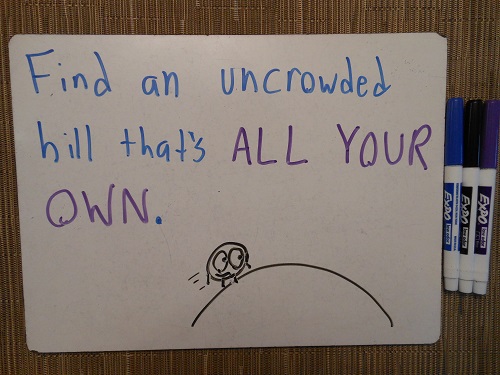 Find an uncrowded
hill that's ALL YOUR
OWN.
EXPO
EXPO
EXPO